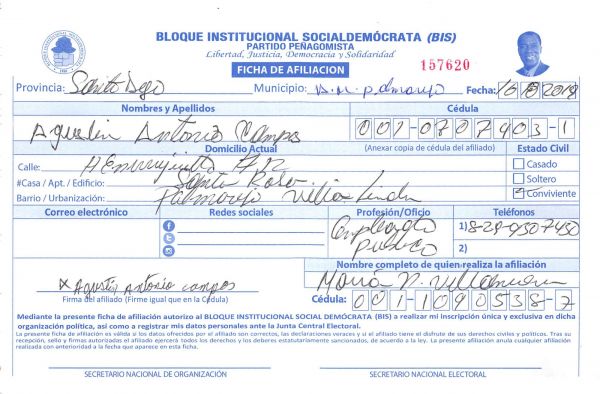 BLOQUE INSTITUCIONAL SOCIALDEMÓCRATA (BIS)
PARTIDO PEÑAGOMISTA
Libertad, Justicia, Democracia y Solidaridad
FICHA DE AFILIACION
157620
Provincia: Santo Dgo Municipio: Fecha: 10 8 2018
Nombres y Apellidos Cédula
Agustin Antonio Campos 001-0707903-1
Domicilio Actual (Anexar copia de cédula del afiliado) Estado Civil
Calle: Casado
#Casa / Apt. / Edificio: Santa Rosa Soltero
Barrio / Urbanización: Palmarejo Villa Linda Conviviente
Correo electrónico Redes sociales Profesión/Oficio Teléfonos
Empleado 1) 8-29-930-7450
Publico 2)
Nombre completo de quien realiza la afiliación
x Agustin Antonio campos Maria V. Villanueva
Firma del afiliado (Firme igual que en la Cédula) Cédula: 001-1090538-7
Mediante la presente ficha de afiliación autorizo al BLOQUE INSTITUCIONAL SOCIAL DEMÓCRATA (BIS) a realizar mi inscripción única y exclusiva en dicha
organización política, así como a registrar mis datos personales ante la Junta Central Electoral.
La presente ficha de afiliación es válida si los datos ofrecidos por el afiliado son correctos, las declaraciones veraces y si el afiliado tiene el disfrute de sus derechos civiles y políticos. Tras su
recepción, sello y firmas autorizadas el afiliado ejercerá todos los derechos y los deberes estatutariamente sancionados, de acuerdo a la ley. La presente afiliación anula cualquier afiliación
realizada con anterioridad a la fecha que aparece en esta ficha.
SECRETARIO NACIONAL DE ORGANIZACIÓN SECRETARIO NACIONAL ELECTORAL